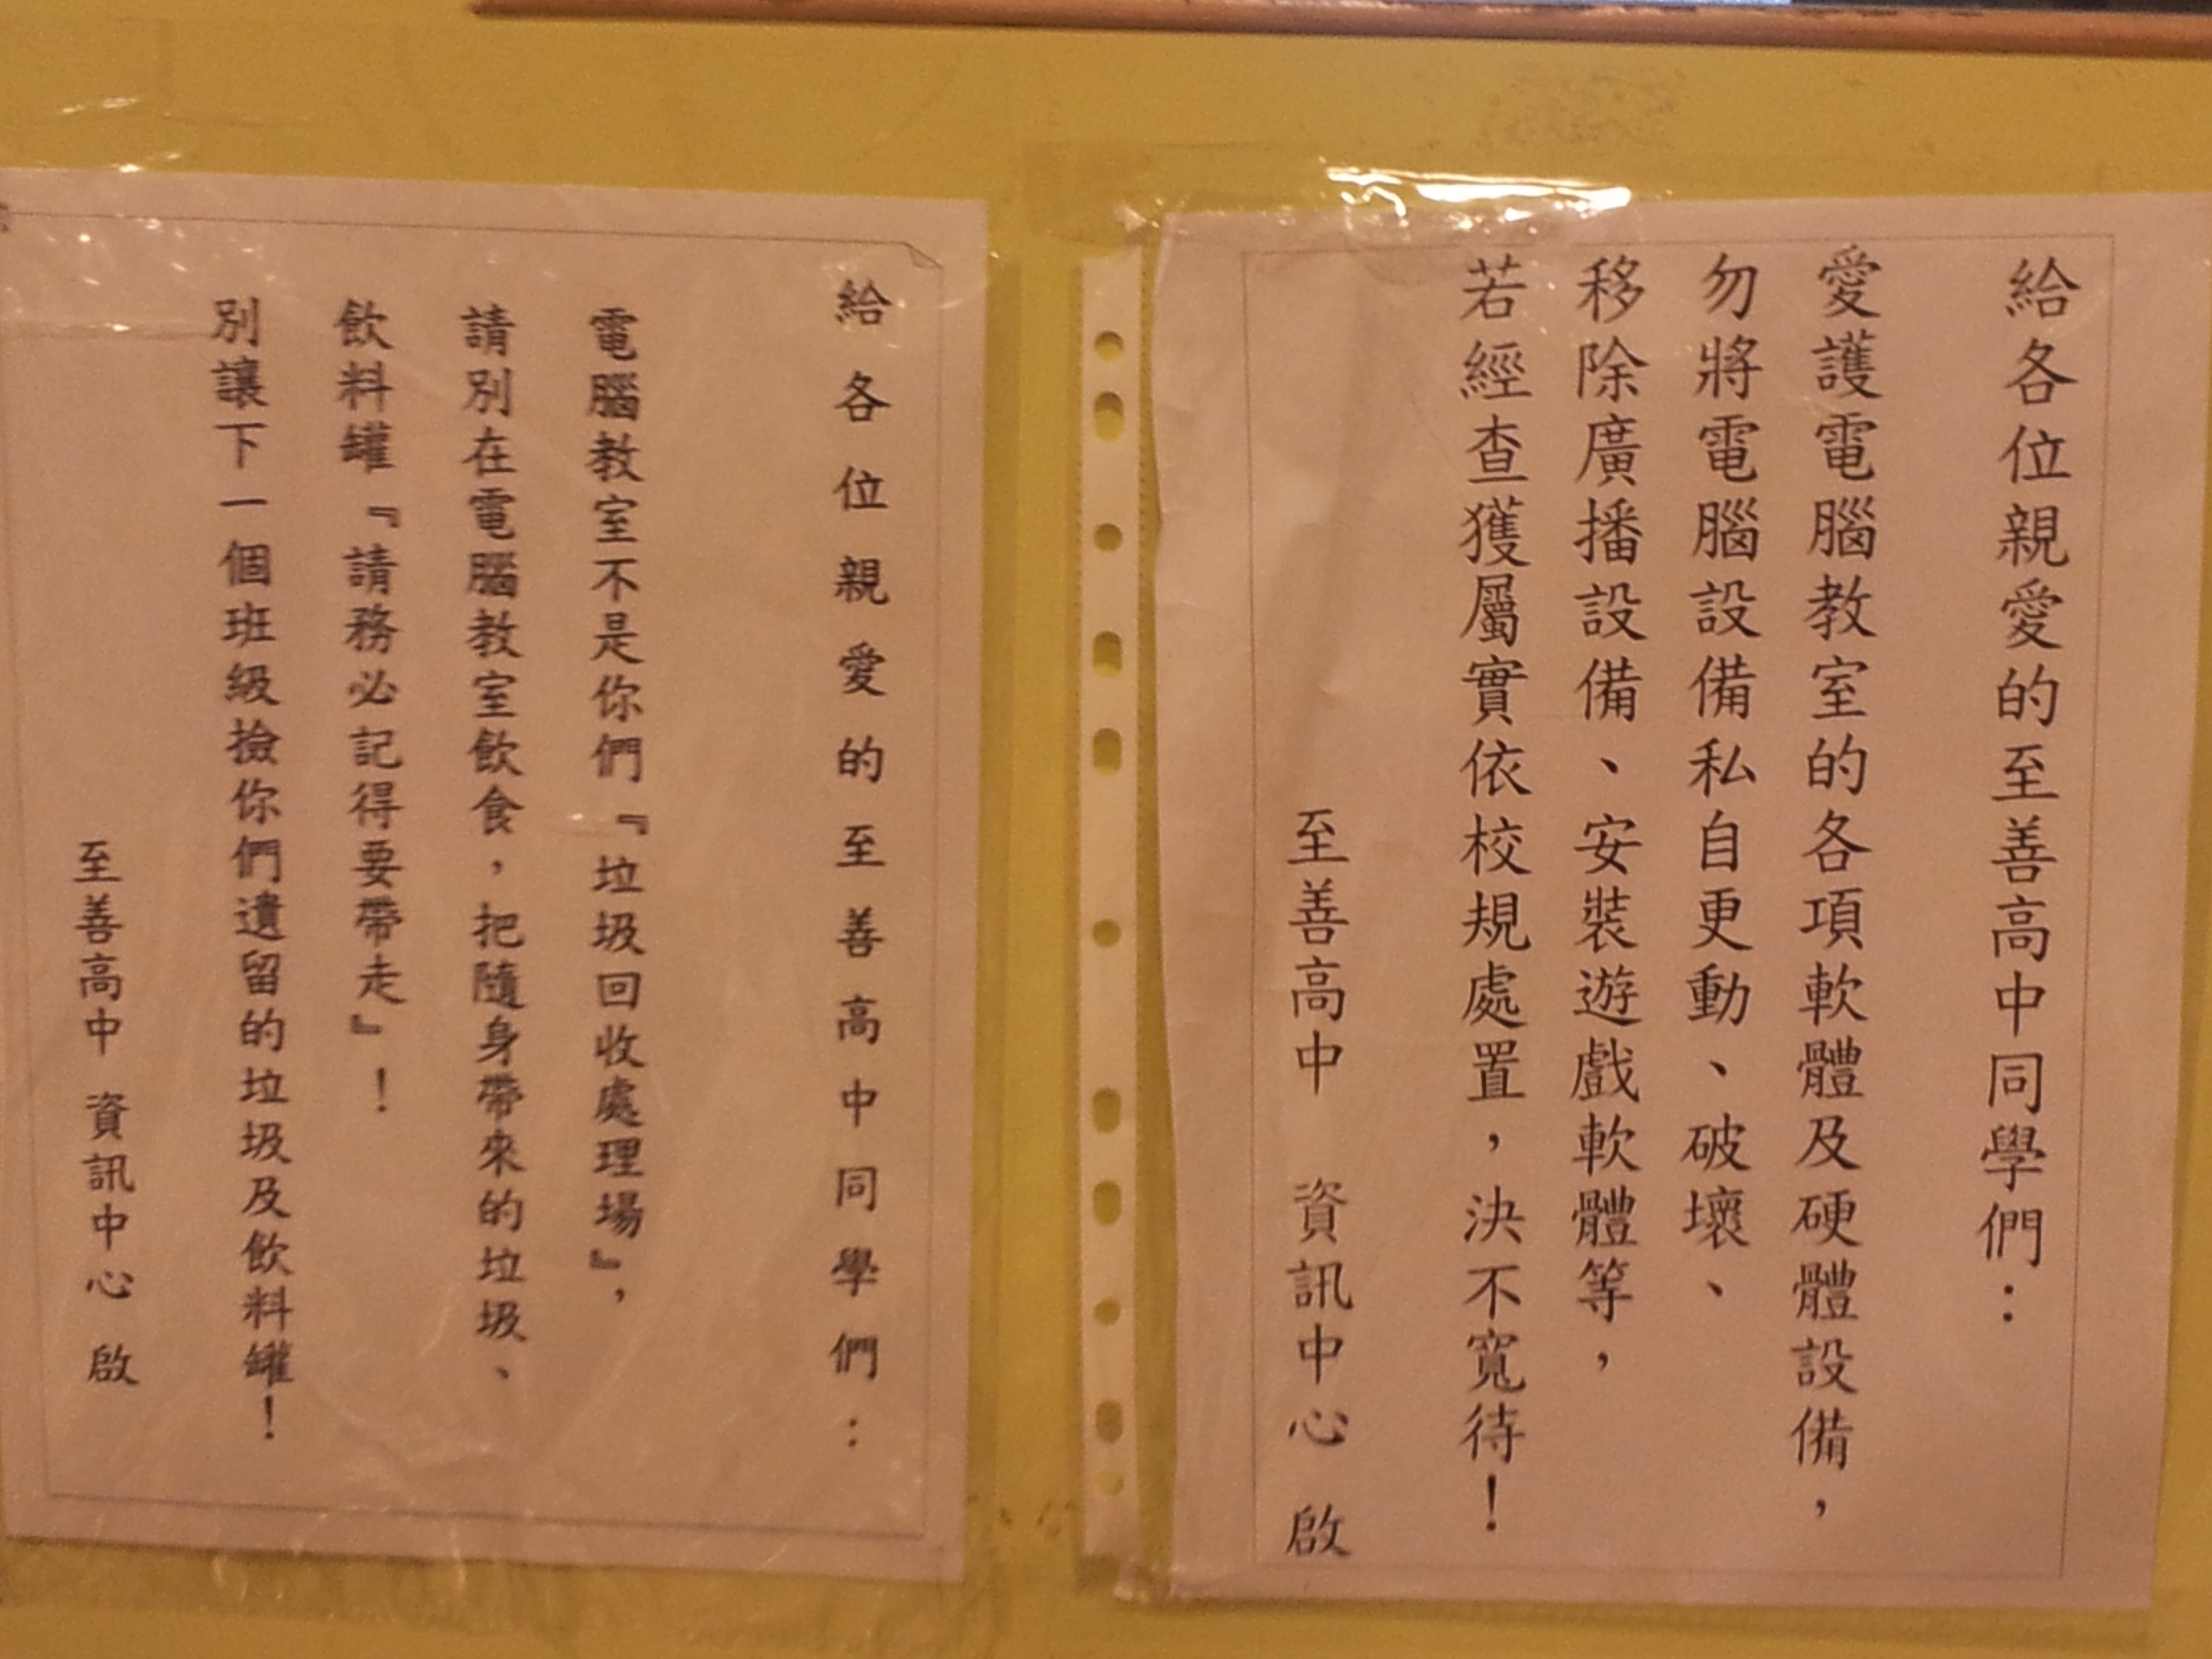 給各位親愛的至善高中同學們：
愛護電腦教室的各項軟體及硬體設備，
勿將電腦設備私自更動、破壞、
移除廣播設備、安裝遊戲軟體等，
若經查獲屬實依校規處置，決不寬待！
至善高中 資訊中心 啟
給各位親愛的至善高中同學們：
電腦教室不是你們『垃圾回收處理場』，
請別在電腦教室飲食，把隨身帶來的垃圾、
飲料罐『請務必記得要帶走』！
別讓下一個班級撿你們遺留的垃圾及飲料罐！
至善高中 資訊中心 啟